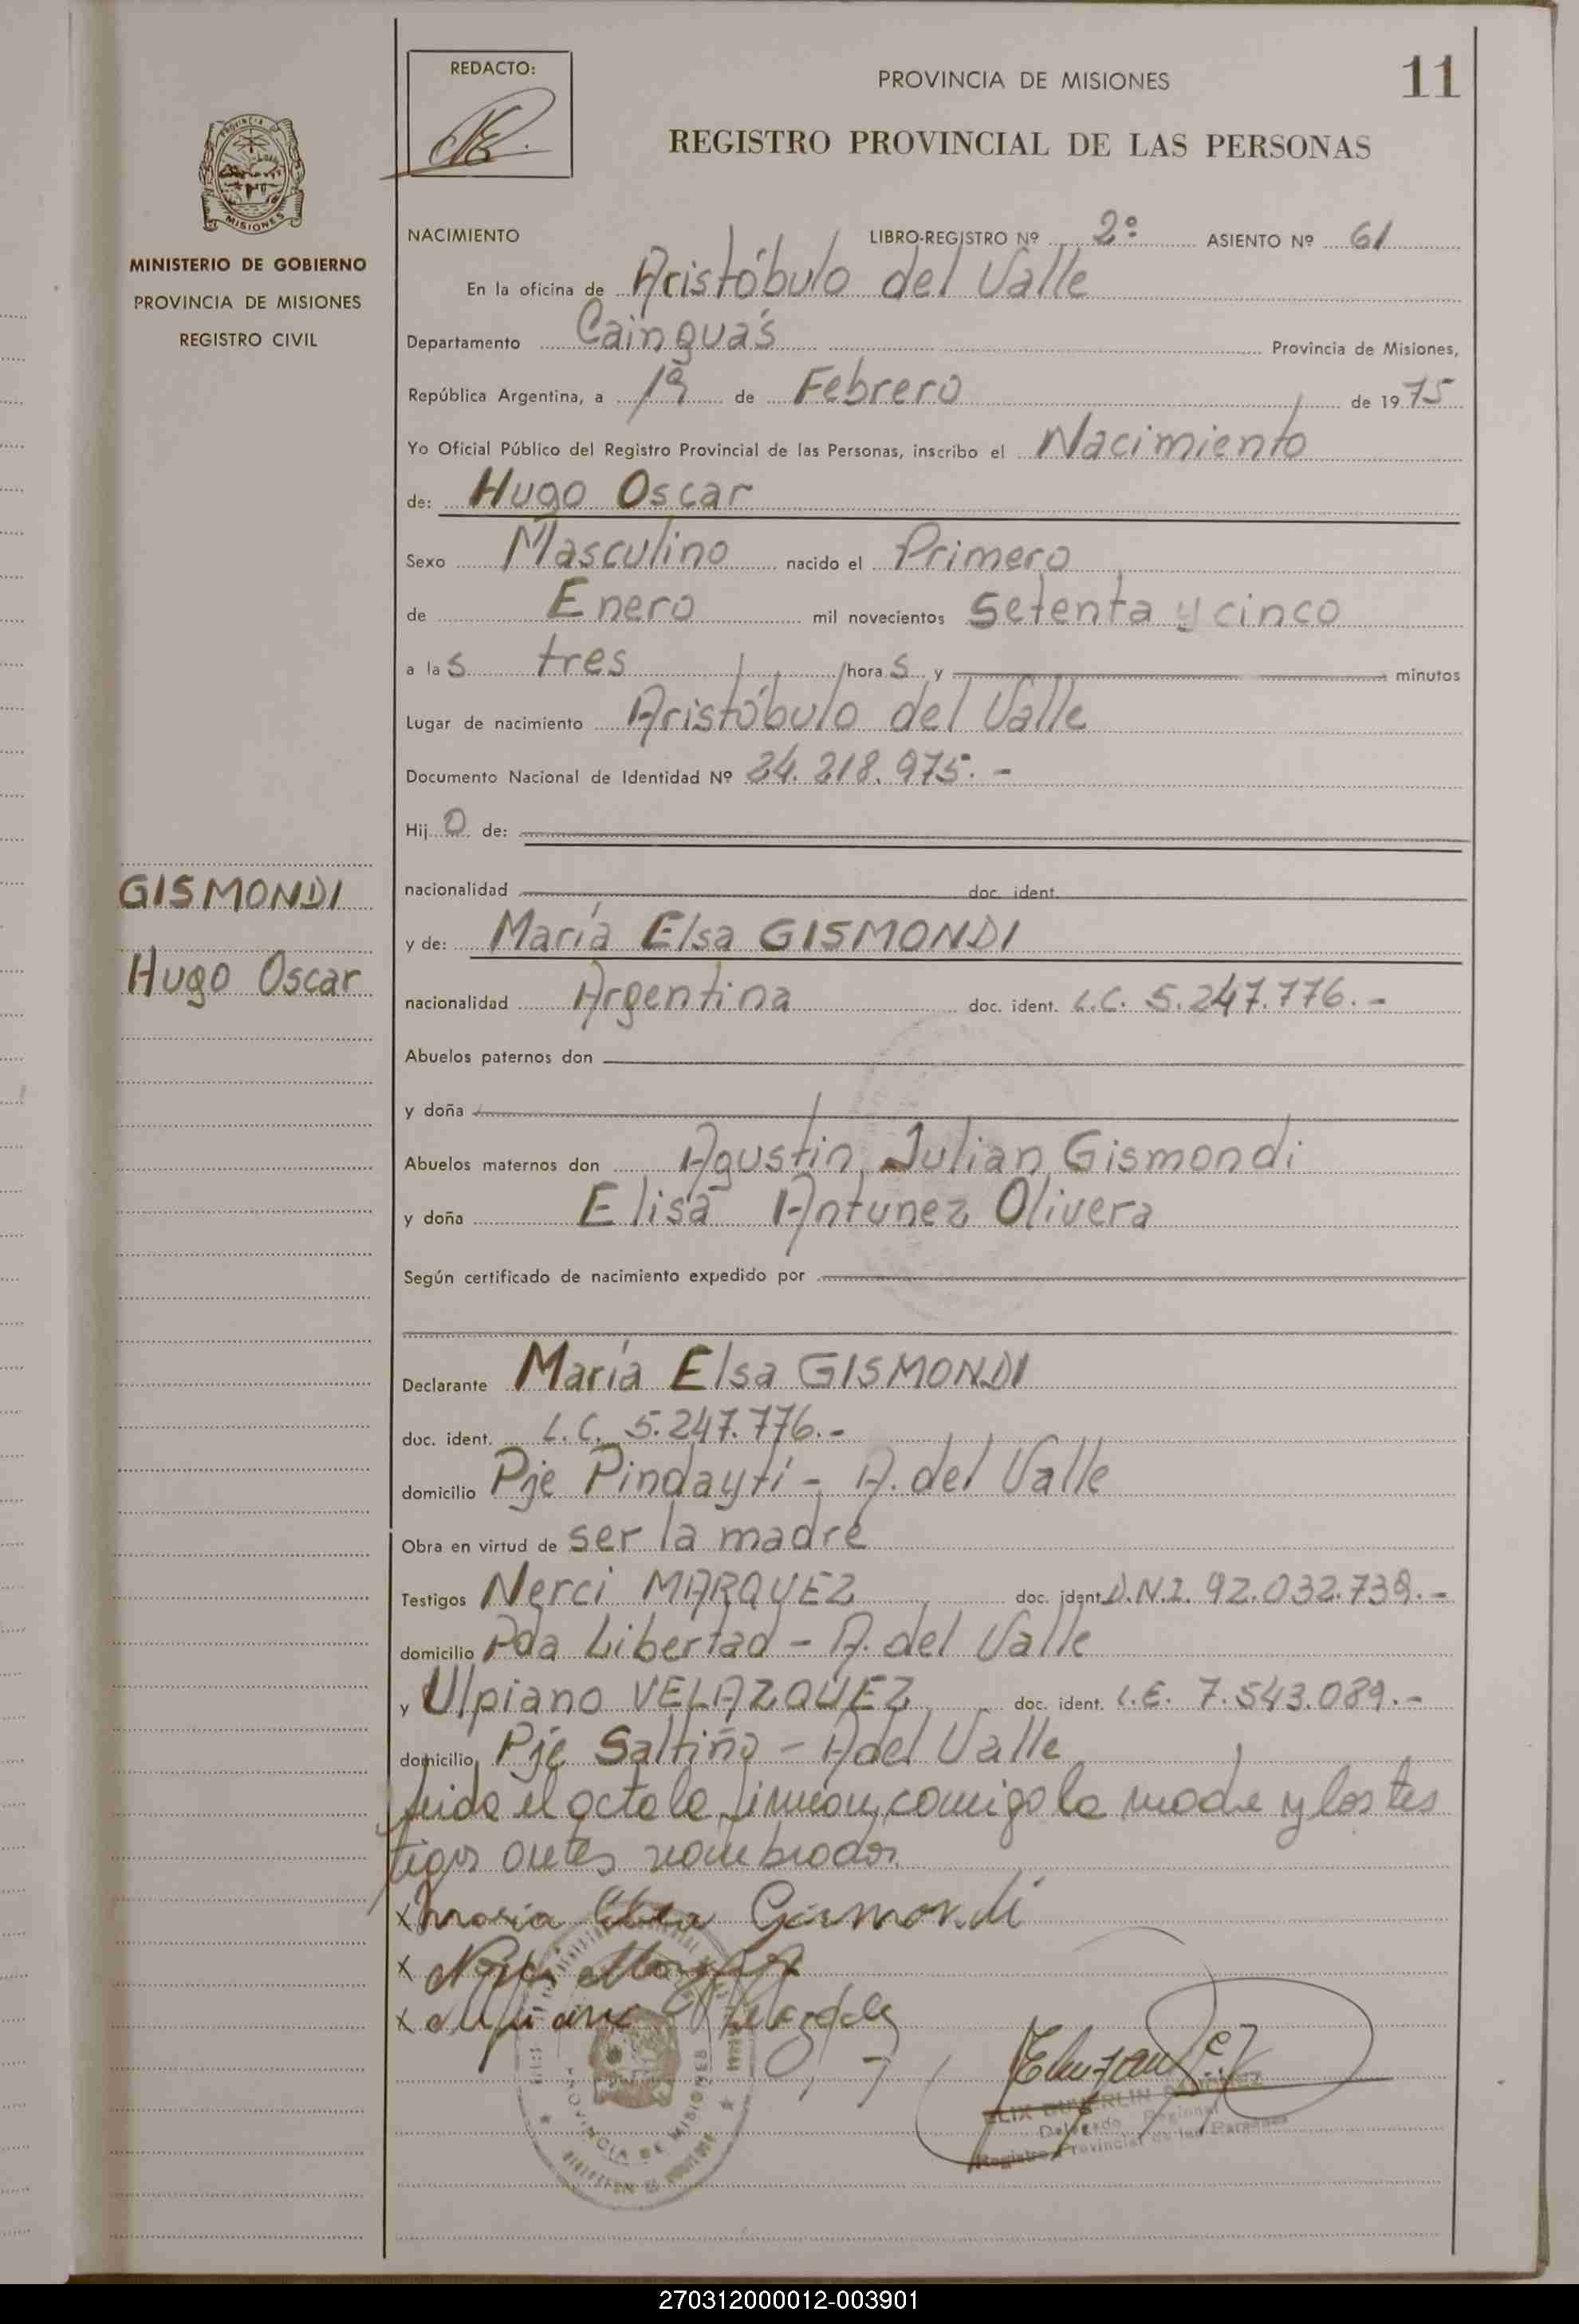 REDACTO:
PROVINCIA DE MISIONES
11
REGISTRO PROVINCIAL DE LAS PERSONAS
PROVINCIA DE
MISIONES
MINISTERIO DE GOBIERNO
PROVINCIA DE MISIONES
REGISTRO CIVIL
NACIMIENTO LIBRO-REGISTRO Nº 2º ASIENTO Nº 61
En la oficina de Aristóbulo del Valle
Departamento Cainguás Provincia de Misiones,
República Argentina, a 19 de Febrero de 1975
Yo Oficial Público del Registro Provincial de las Personas, inscribo el Nacimiento
de: Hugo Oscar
Sexo Masculino nacido el Primero
de Enero mil novecientos setenta y cinco
a las tres horas y minutos
Lugar de nacimiento Aristóbulo del Valle
Documento Nacional de Identidad Nº 24.218.975.-
Hijo de:
GISMONDI
Hugo Oscar
nacionalidad doc. ident.
y de: María Elsa GISMONDI
nacionalidad Argentina doc. ident. L.C. 5.247.776.-
Abuelos paternos don
y doña
Abuelos maternos don Agustin Julian Gismondi
y doña Elisa Antunez Olivera
Según certificado de nacimiento expedido por
Declarante María Elsa GISMONDI
doc. ident. L.C. 5.247.776.-
domicilio Pje Pindaytí - A. del Valle
Obra en virtud de ser la madre
Testigos Nerci MARQUEZ doc. ident. D.N.I. 92.032.739.-
domicilio Pda Libertad - A. del Valle
y Ulpiano VELAZQUEZ doc. ident. L.E. 7.543.089.-
domicilio Pje Saltiño - A del Valle
leida el acta la firman, comigo la madre y los tes
tigos antes nombrados.
x Maria Elsa Gismondi
x
x
PROVINCIA DE MISIONES
Delegado Regional
Registro Provincial de las Personas
270312000012-003901